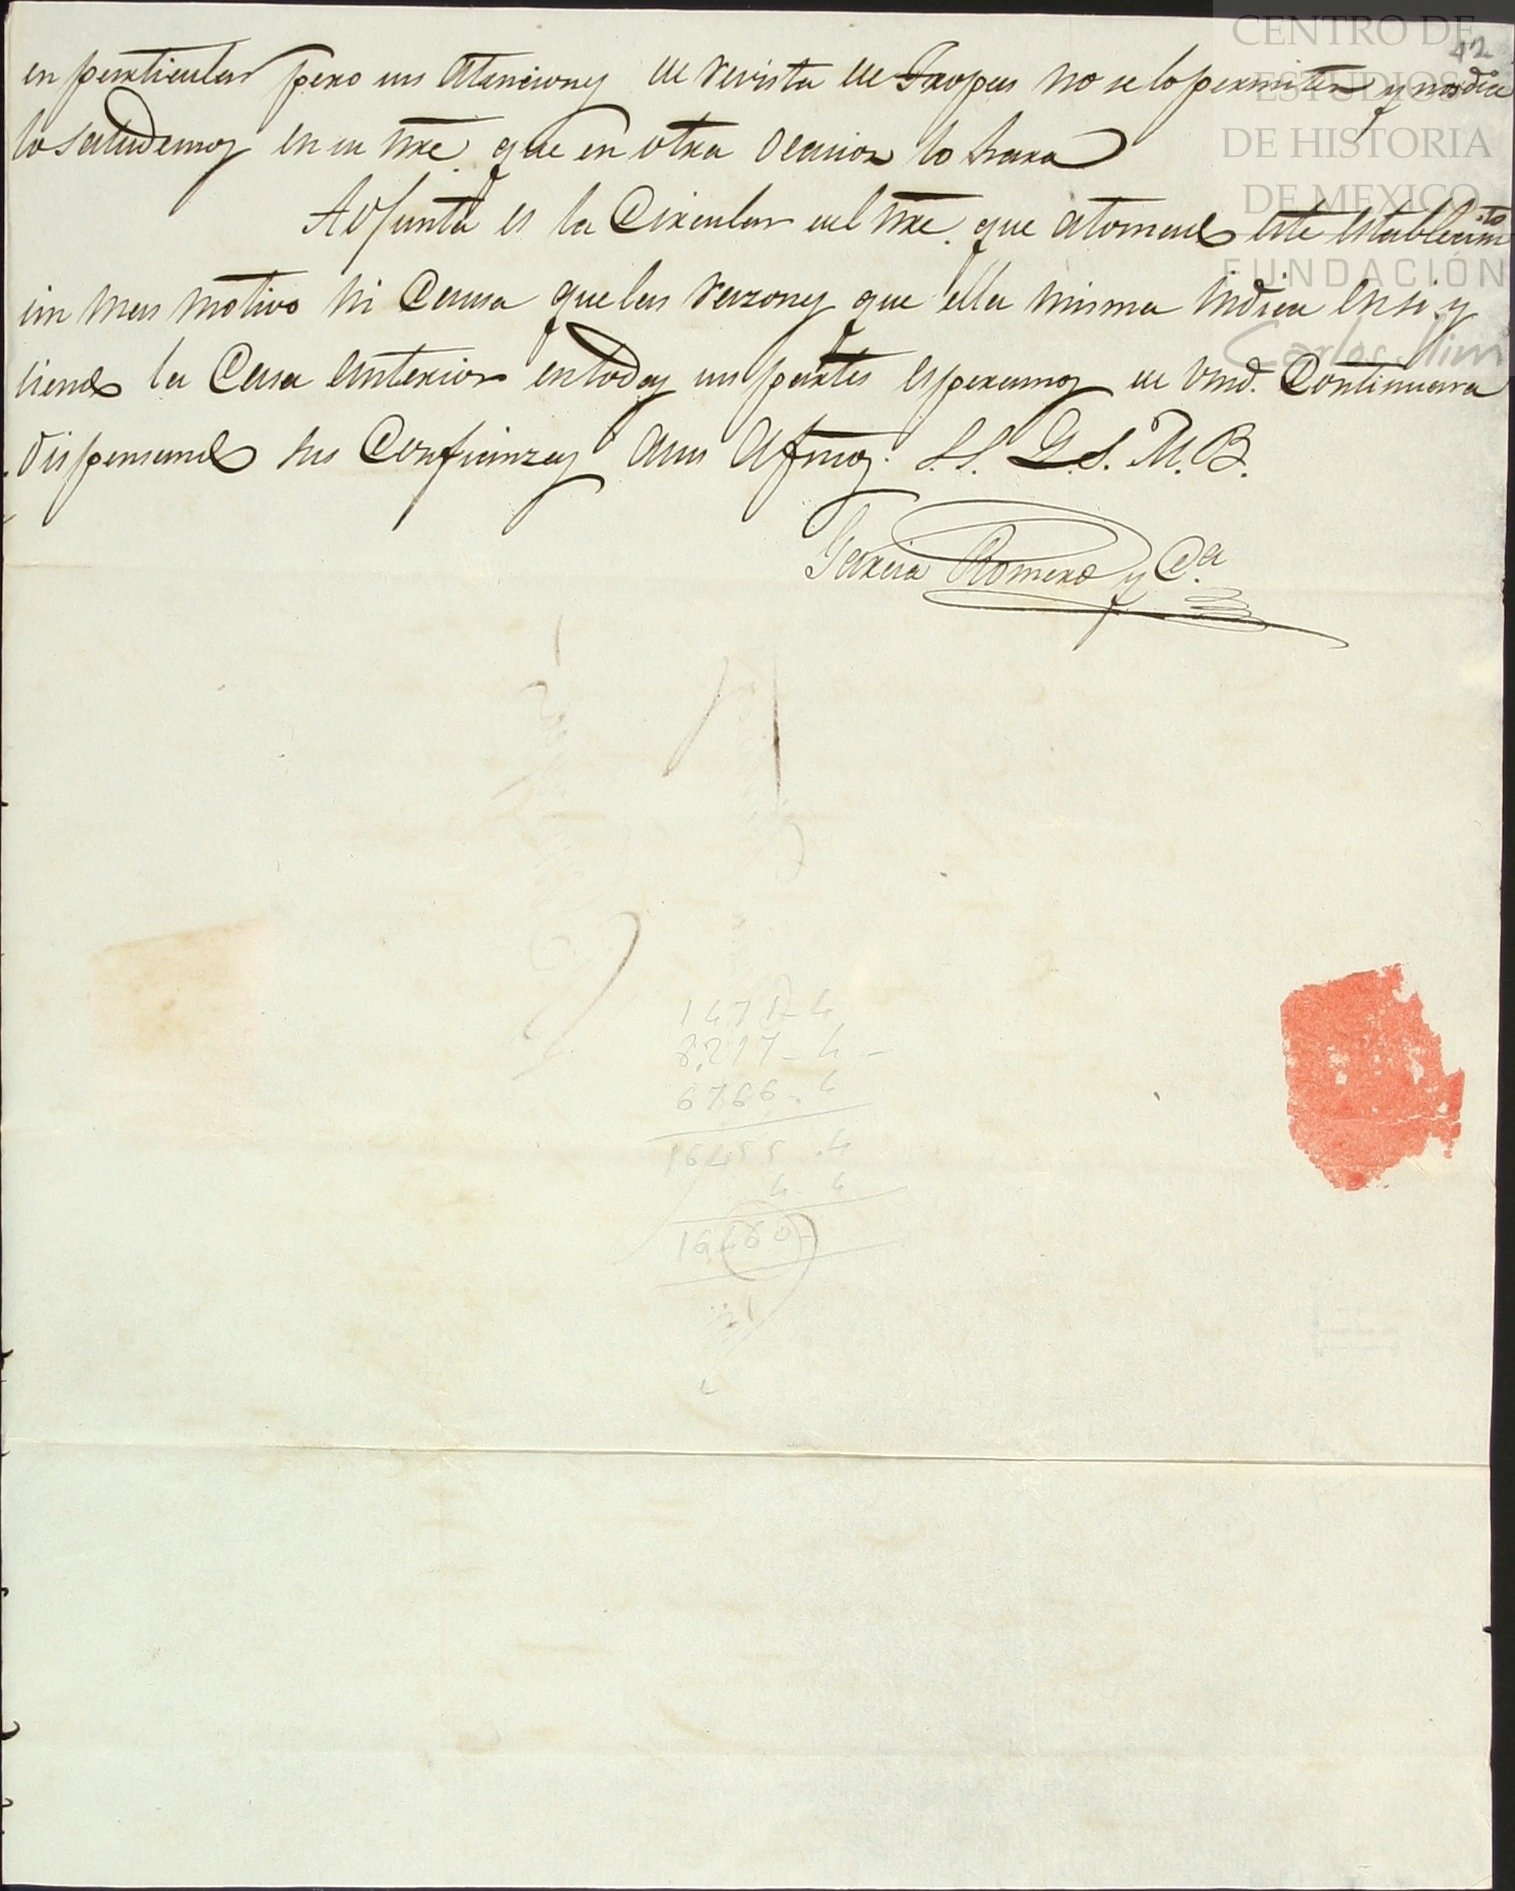 42
en particular pero sus atenciones de revista de Tropas no se lo permiten y nos dice
lo saludemos en su nre. que en otra ocacion lo hara
Adjunta es la Circular del nre. que atomado este establecimto
sin mas motivo ni Causa que las razones que ella misma indica en si, y
siendo la Casa anterior en todas sus partes esperamos de Vmd. Continuara
dispensando sus Confianzas a sus afmos. S.S. Q.S.M.B.
Garcia Romero y Ca.
1471-4
8,217-4-
6766-4
16455.4
4-4
16,460-
CENTRO DE
ESTUDIOS
DE HISTORIA
DE MEXICO
FUNDACIÓN
Carlos Slim